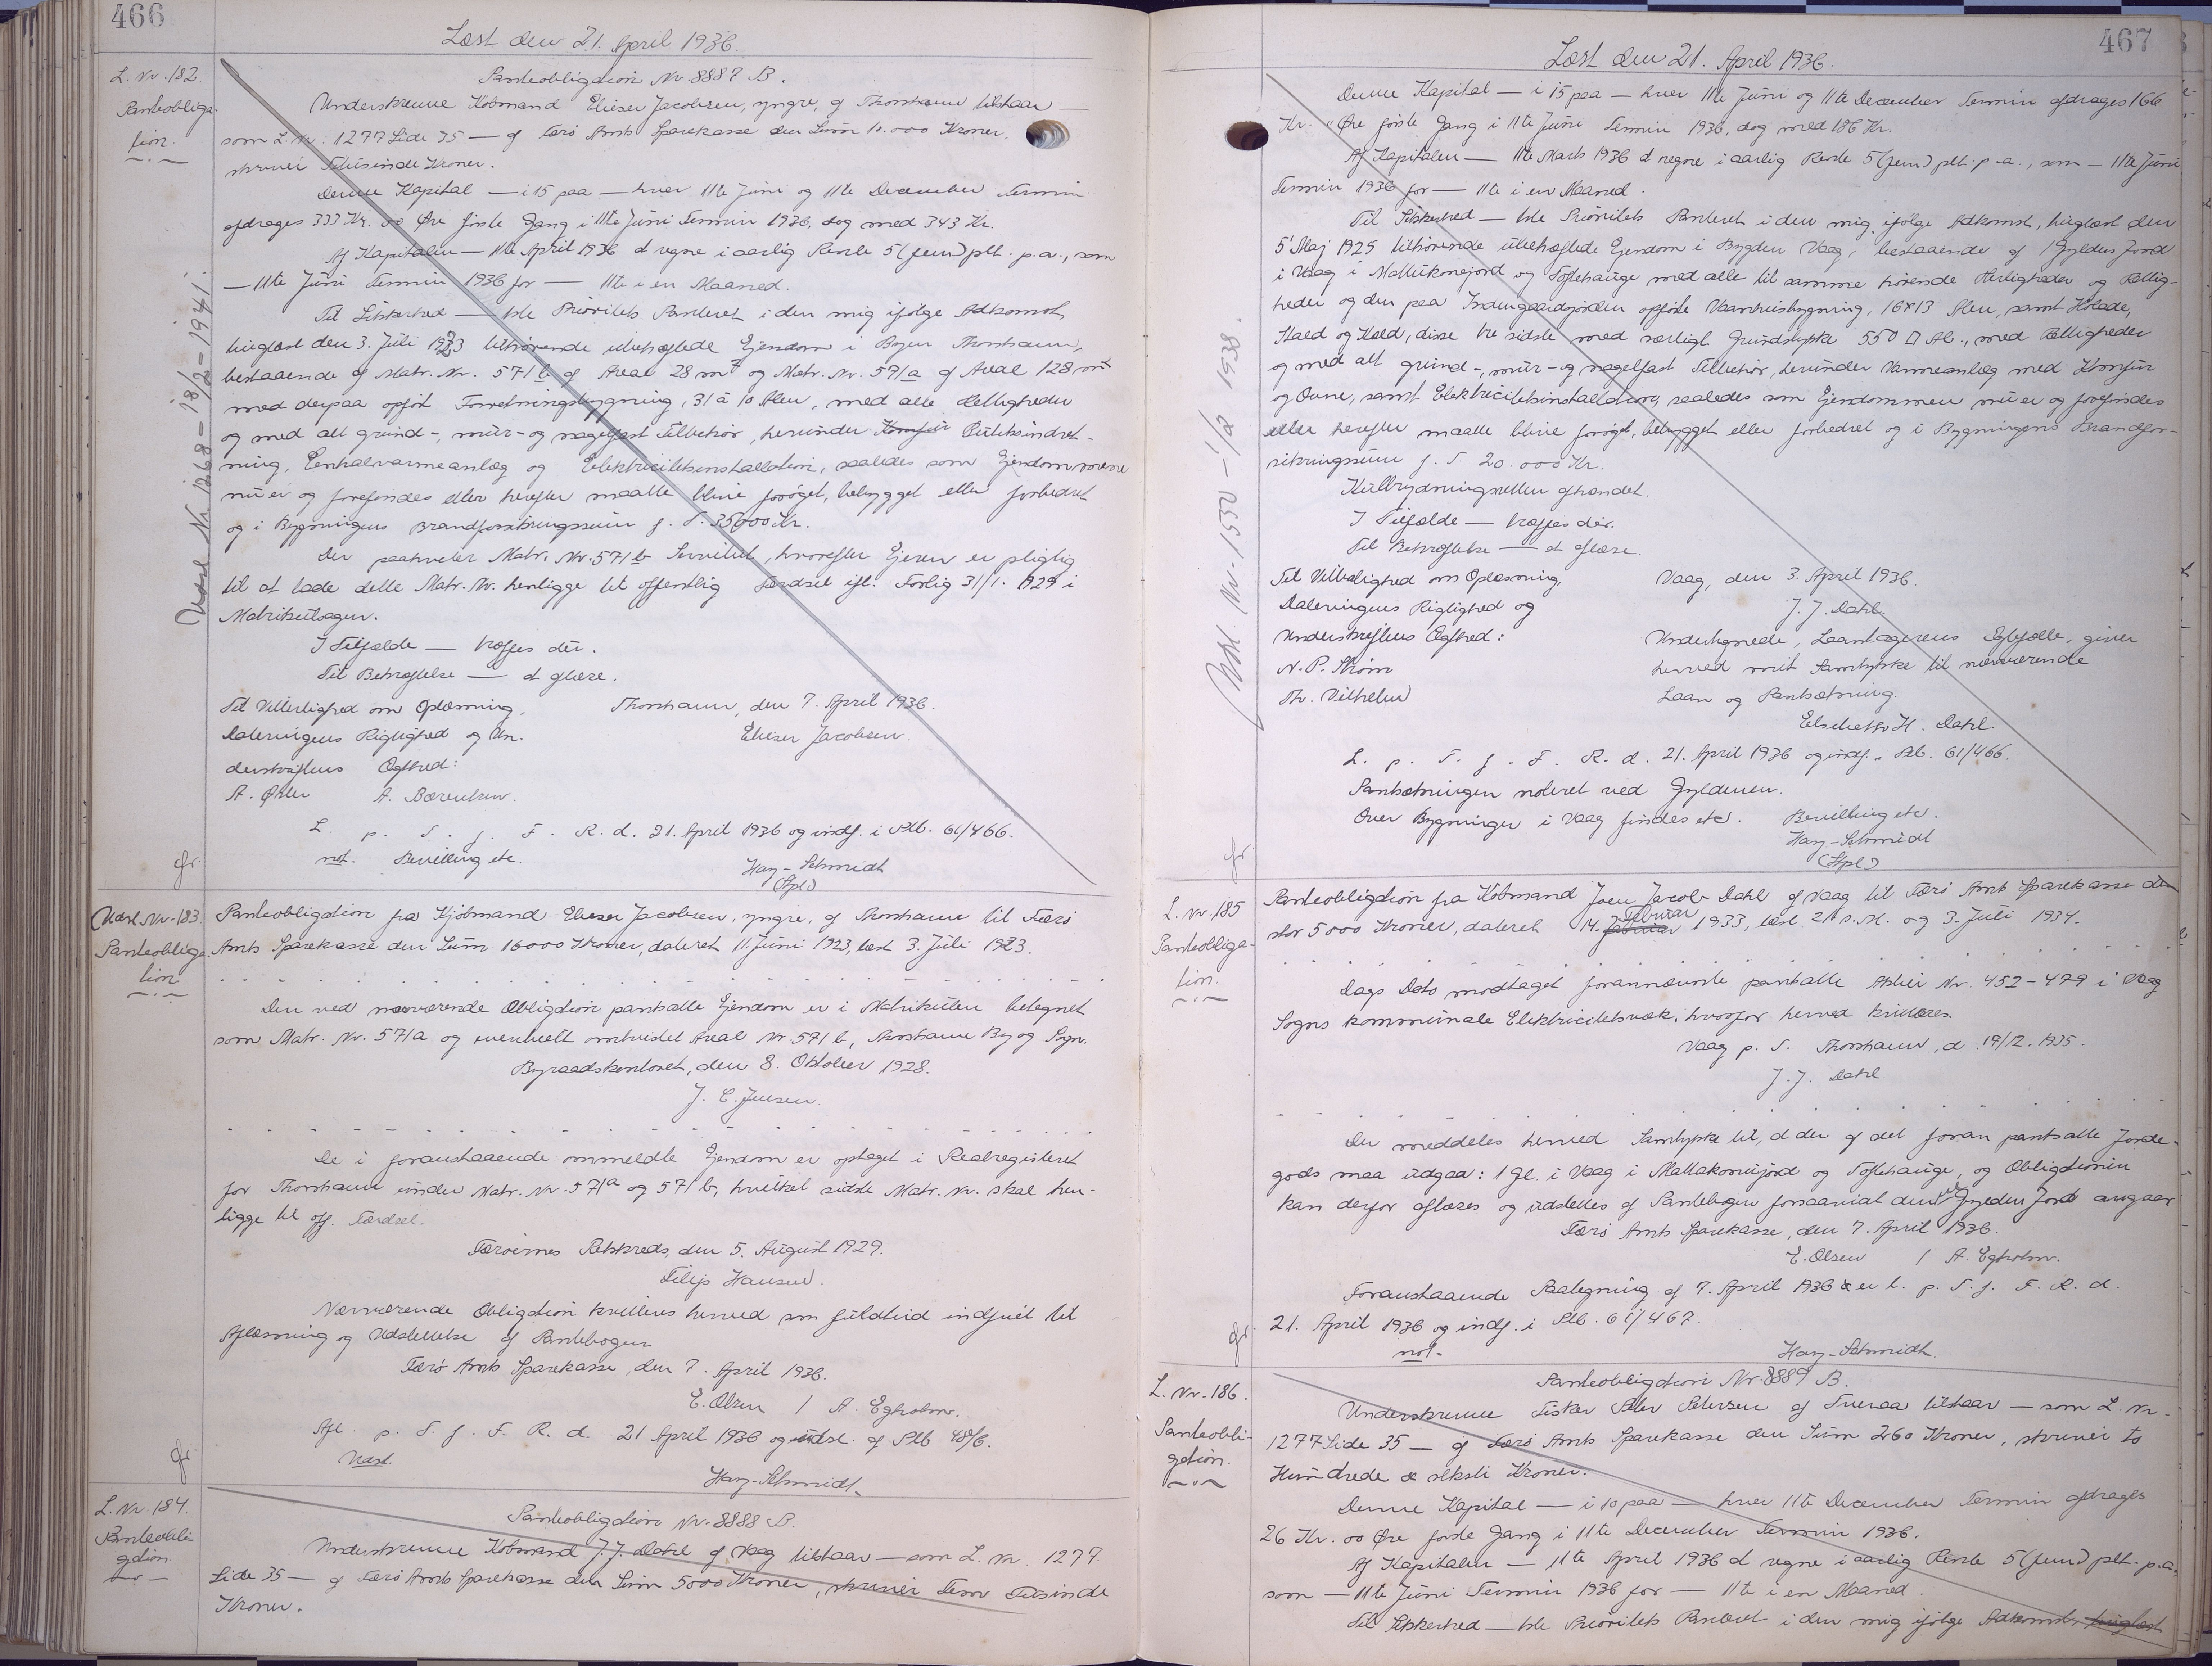 466
Læst den 21. April 1936.
L. Nr. 182.
Panteobliga-
tion.
Panteobligation Nr. 8887 B.
Underskrevne Købmand Elieser Jacobsen, yngre, af Thorshavn tilstaar —
som L. Nr. 1277 Side 35 — af Færø Amts Sparekasse den Sum 10.000 Kroner,
skriver Titusinde Kroner.
Denne Kapital — i 15 paa — hver 11te Juni og 11te December Termin
afdrages 333 Kr. 00 Øre første Gang i 11te Juni Termin 1936, dog med 343 Kr.
Af Kapitalen — 11te April 1936 at regne i aarlig Rente 5 (fem) pCt. p.a., som
— 11te Juni Termin 1936 for — 11te i en Maaned.
Til Sikkerhed — 1ste Prioritets Panteret i den mig ifølge Adkomst,
tinglæst den 3. Juli 1923 tilhørende ubehæftede Ejendom i Byen Thorshavn,
bestaaende af Matr. Nr. 571 b af Areal 28 m² og Matr. Nr. 571 a af Areal 128 m²
med derpaa opført Forretningsbygning, 31 à 10 Alen, med alle Rettigheder
og med alt grund-, mur- og nagelfast Tilbehør, herunder Komfur Butiksindret-
ning, Centralvarmeanlæg og Elektricitetsinstallation, saaledes som Ejendommene
nu er og forefindes eller herefter maatte blive forøget, bebygget eller forbedret
og i Bygningens Brandforsikringssum f. T. 35000 Kr.
Der paahviler Matr. Nr. 571 b Servitut, hvorefter Ejeren er pligtig
til at lade dette Matr. Nr. henligge til offentlig Færdsel ifl. Forlig 31/1. 1929 i
Matrikulsagen.
I Tilfælde — træffes dér.
Til Bekræftelse — at aflæse.
Til Vitterlighed om Oplæsning,
Dateringens Rigtighed og Un-
derskriftens Ægthed:
Thorshavn, den 7. April 1936.
Elieser Jacobsen.
A. Øster A. Bærentsen.
L. p. T. f. F. R. d. 21. April 1936 og indf. i Ptb. 61/466.
not. Bevilling etc.
Hay-Schmidt
(Spl.)
Udsl. Nr. 1268 - 18/2 - 1941.
Udsl. Nr. 183.
Panteobliga-
tion.
Panteobligation fra Kjøbmand Elieser Jacobsen, yngre, af Thorshavn til Færø
Amts Sparekasse den Sum 16000 Kroner, dateret 11. Juni 1923, læst 3. Juli 1923.
Den ved nærværende Obligation pantsatte Ejendom er i Matrikulen betegnet
som Matr. Nr. 571 a og eventuelt omtvistet Areal Nr. 571 b, Thorshavn By og Sogn.
Byraadskontoret, den 8. Oktober 1928.
J. C. Jensen.
De i foranstaaende ommeldte Ejendom er optaget i Realregisteret
for Thorshavn under Matr. Nr. 571 a og 571 b, hvilket sidste Matr. Nr. skal hen-
ligge til off. Færdsel.
Færøernes Retskreds, den 5. August 1929.
Filip Hansen.
Nærværende Obligation kvitteres herved som fuldtud indfriet til
Aflæsning og Udslettelse af Pantebogen.
Færø Amts Sparekasse, den 7. April 1936.
E. Olsen / A. Egholm.
Afl. p. T. f. F. R. d. 21 April 1936 og udsl. af Ptb 48/6.
Udsl.
Hay-Schmidt.
L. Nr. 184.
Panteobli-
gation
Panteobligation Nr. 8888 B.
Underskrevne Købmand J. J. Dahl af Vaag tilstaar — som L. Nr. 1277.
Side 35 — af Færø Amts Sparekasse den Sum 5000 Kroner, skriver Fem Tusinde
Kroner.
467
Læst den 21. April 1936.
Denne Kapital — i 15 paa — hver 11te Juni og 11te December Termin afdrages 166
Kr. " Øre første Gang i 11te Juni Termin 1936, dog med 186 Kr.
Af Kapitalen — 11te Marts 1936 at regne i aarlig Rente 5 (fem) pCt. p.a., som — 11te Juni
Termin 1936 for — 11te i en Maaned.
Til Sikkerhed — 1ste Prioritets Panteret i den mig, ifølge Adkomst, tinglæst den
5' Maj 1925 tilhørende ubehæftede Ejendom i Bygden Vaag, bestaaende af 1 Gylden Jord
i Vaag i Mattukonejord og Toftehauge med alle til samme hørende Herligheder og Rettig-
heder og den paa Indengaardsjorden opførte Vaanhusbygning, 16 x 13 Alen, samt Hølade,
Stald og Hjeld, disse tre sidste med særligt Grundstykke 550 □ Al., med Rettigheder
og med alt grund-, mur- og nagelfast Tilbehør, herunder Varmeanlæg med Komfur
og Ovne, samt Elektricitetsinstallation, saaledes som Ejendommen nu er og forefindes
eller herefter maatte blive forøget, bebygget eller forbedret og i Bygningens Brandfor-
sikringssum f. T. 20.000 Kr.
Kulbrydningsretten afhændet.
I Tilfælde — træffes dér.
Til Bekræftelse — at aflæse.
Til Vitterlighed om Oplæsning,
Dateringens Rigtighed og
Underskriftens Ægthed:
N. P. Thom
Th. Vilhelm
Vaag, den 3. April 1936.
J. J. Dahl.
Undertegnede, Laantagerens Ægtefælle, giver
herved mit Samtykke til nærværende
Laan og Pantsætning.
Elsebeth H. Dahl.
L. p. T. f. F. R. d. 21. April 1936 og indf. i Ptb. 61/466.
Pantsætningen noteret ved Gyldenen.
Over Bygninger i Vaag findes etc. Bevilling etc.
Hay-Schmidt
(Spl.)
Udsl. Nr. 1550 - 1/2 1938.
L. Nr. 185
Panteobliga-
tion.
Panteobligation fra Købmand Joen Jacob Dahl af Vaag til Færø Amts Sparekasse den
stor 5000 Kroner, dateret 14. Februar 1933, læst 21 s.M. og 3. Juli 1934.
Dags Dato modtaget forannævnte pantsatte Aktier Nr. 452-479 i Vaag
Sogns kommunale Elektricitetsværk, hvorfor herved kvitteres.
Vaag p. T. Thorshavn, d. 19/12. 1935.
J. J. Dahl.
Der meddeles herved Samtykke til, at der af det foran pantsatte Jorde-
gods maa udgaa: 1 Gl. i Vaag i Mattakonujord og Toftehauge, og Obligationen
kan derfor aflæses og udslettes af Pantebogen forsaavidt denne Gylden Jord angaar
Færø Amts Sparekasse, den 7. April 1936.
E. Olsen / A. Egholm.
Foranstaaende Paategning af 7. April 1936 er l. p. T. f. F. R. d.
21. April 1936 og indf. i Ptb. 61/467.
not.
Hay-Schmidt.
L. Nr. 186.
Panteobli-
gation.
Panteobligation Nr. 8889 B.
Underskrevne Fisker Peter Petersen af Tveraa tilstaar — som L. Nr.
1277 Side 35 — af Færø Amts Sparekasse den Sum 260 Kroner, skriver to
Hundrede & seksti Kroner.
Denne Kapital — i 10 paa — hver 11te December Termin afdrages
26 Kr. 00 Øre første Gang i 11te December Termin 1936.
Af Kapitalen — 11te April 1936 at regne i aarlig Rente 5 (fem) pCt. p.a.,
som — 11te Juni Termin 1936 for — 11te i en Maaned.
Til Sikkerhed — 1ste Prioritets Panteret i den mig ifølge Adkomst, tinglæst